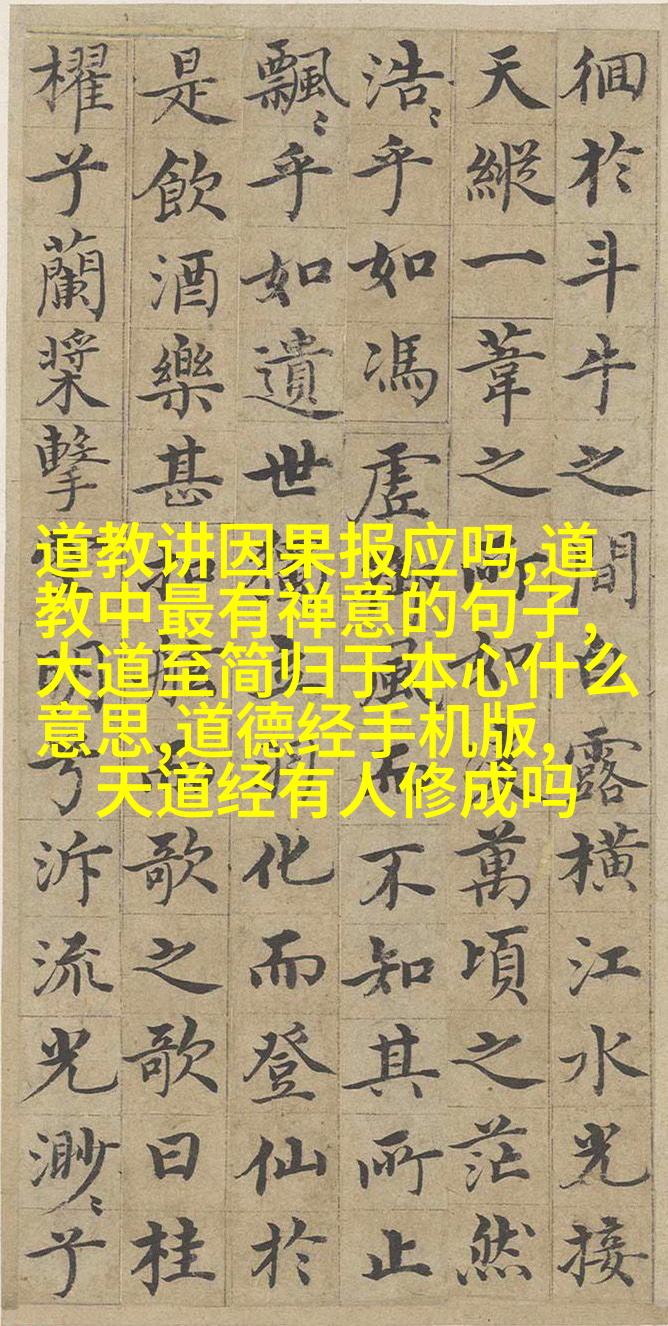 徊於斗牛之間白露橫江水光接
天縱一葦之所如凌萬頃之茫然
浩〻乎如馮虛御風而不知其所止
飄〻乎如遺世獨立羽化而登仙於
是飲酒樂甚扣舷而歌之歌曰桂
櫂兮蘭槳擊空明兮泝流光渺〻兮
道教讲因果报应吗,道
教中最有禅意的句子,
大道至简归于本心什么
意思,道德经手机版,
天道经有人修成吗